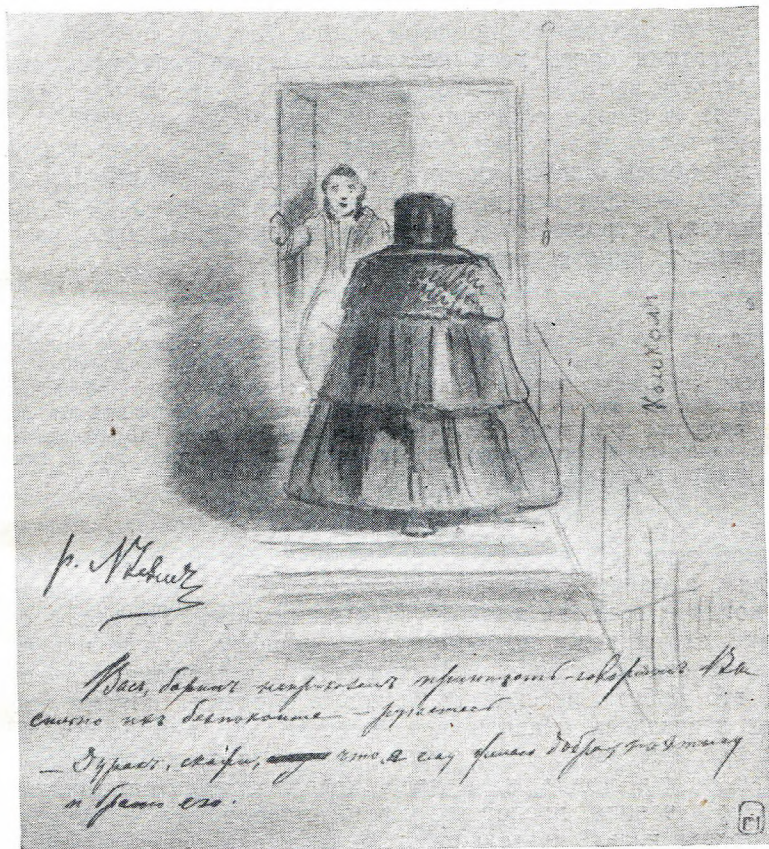 Колоколъ
Васъ, баринъ неприказалъ принимать – говоритъ Вы
сильно ихъ безпокоите – ругаетесь.
— Дуракъ, скажи, что я ему желаю добра, поэтому
и браню его.